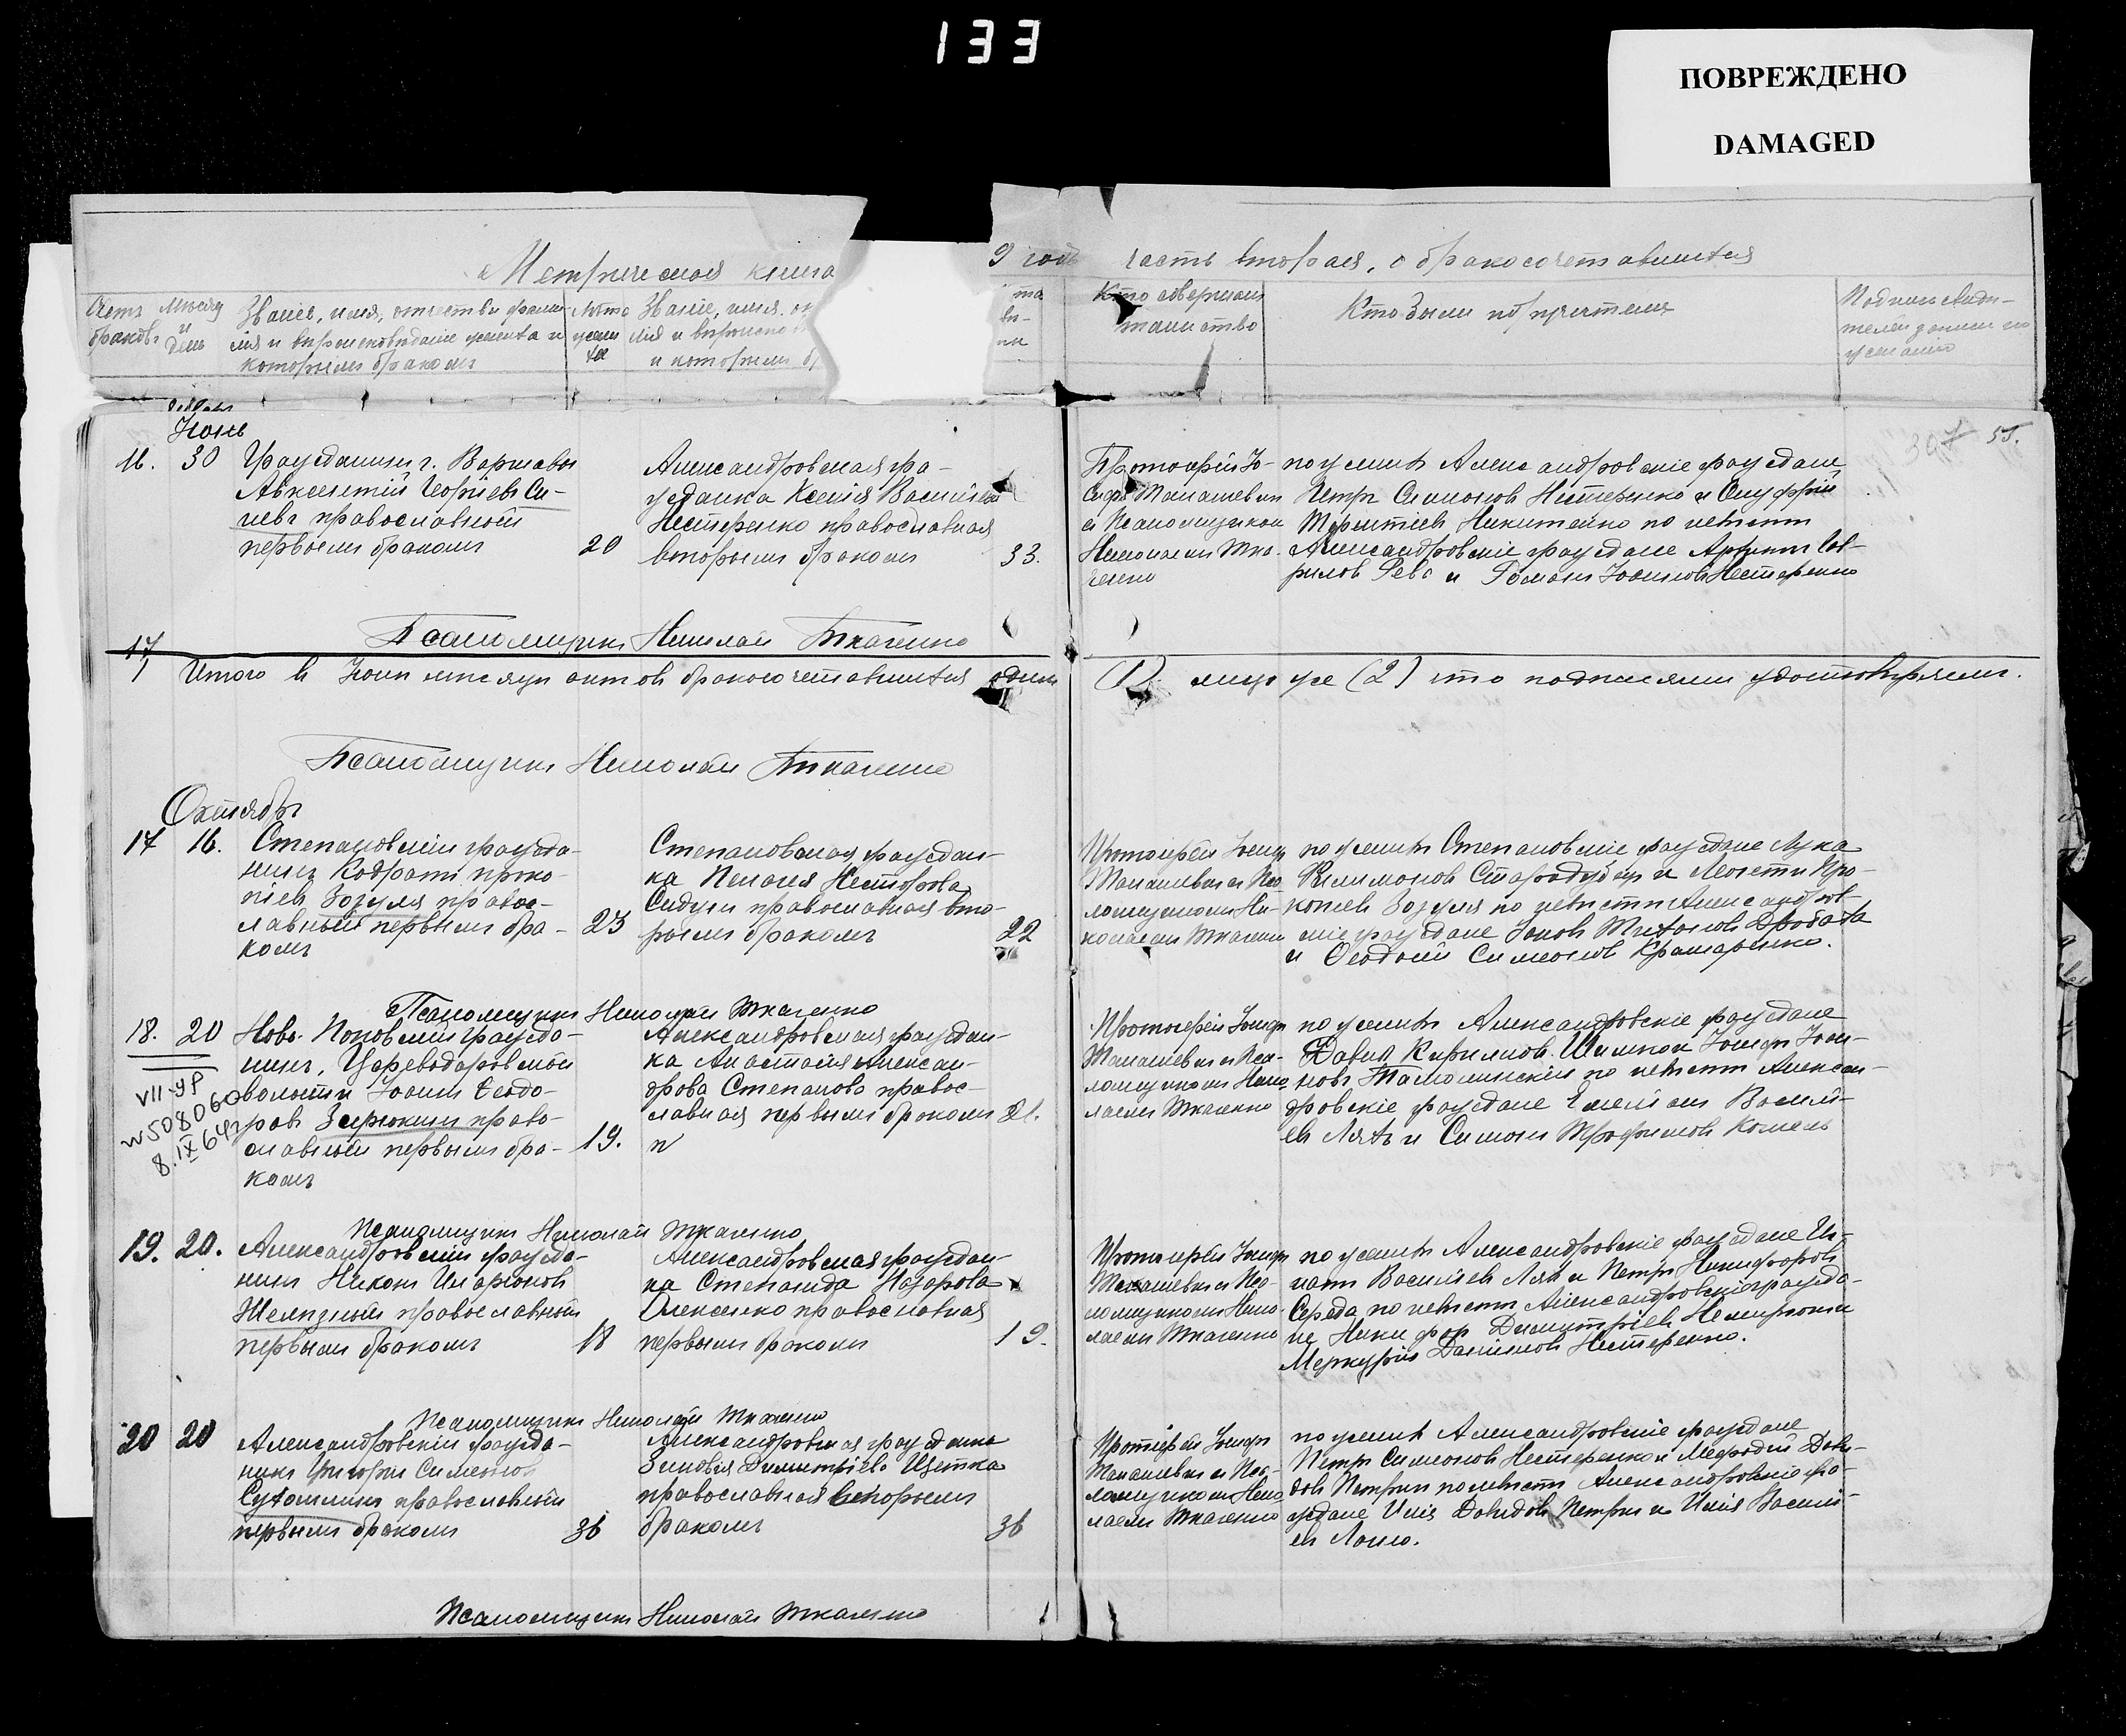 133
ПОВРЕЖДЕНО
DAMAGED
Метрическая книга
9 годъ часть вторая, о бракосочетавшихся
Счетъ браковъ
Мѣсяцъ и день
Званіе, имя, отчество, фами-
лія и вѣроисповѣданіе жениха и
которымъ бракомъ
Лѣта жениха
Званіе, имя,
лія и вѣроиспо
и которымъ
Кто совершалъ
таинство
Кто были поручители
Подпись свидѣ-
телей записи по
желанію
Іюнь
16. 30 Гражданинъ г. Варшавы
Авксентій Георгіевъ Си-
невъ православный
первымъ бракомъ 20
Александровская гра-
жданка Ксенія Васильева
Нестеренко православная
вторымъ бракомъ 33.
Протоіерей Іо-
сифъ Манашевичъ
съ Псаломщикомъ
Николаемъ Тка-
ченко
по женихѣ Александровскіе граждане
Петръ Симоновъ Нестеренко и Онуфрій
Терентіевъ Никитенко по невѣстѣ
Александровскіе граждане Артемъ Гав-
риловъ Рева и Романъ Іосифовъ Нестеренко
Псаломщикъ Николай Ткаченко
17
Итого въ Іюнѣ мѣсяцѣ актовъ бракосочетавшихся одинъ (1) лицъ же (2) что подписями удостовѣряемъ.
Псаломщикъ Николай Ткаченко
Октябрь
17 16. Степановскій гражда-
нинъ Кодратъ Проко-
піевъ Зозуля правос-
лавный первымъ бра-
комъ 23
Степановская граждан-
ка Пелагея Несторова
Сидунъ православная вто-
рымъ бракомъ 22
Протоіерей Іосифъ
Манашевичъ съ Пса-
ломщикомъ Ни-
колаемъ Ткаченко
по женихѣ Степановскіе граждане Лука
Филимоновъ Стародубецъ и Леонтій Про-
копіевъ Зозуля по невѣстѣ Александров-
скіе граждане Іаковъ Тихоновъ Дробаха
и Ѳеодосій Симеоновъ Крамаренко.
Псаломщикъ Николай Ткаченко
18. 20 Ново-Поповскій гражда-
нинъ, Цареводаровской
волости Іоаннъ Ѳеодо-
ровъ Зирюкинъ право-
славный первымъ бра-
комъ 19.
VII-ЯР
N 508060
8.IX 64г
Александровская граждан-
ка Анастасія Алексан-
дрова Степанова правос-
лавная первымъ бракомъ 21.
Протоіерей Іосифъ
Манашевичъ съ Пса-
ломщикомъ Нико-
лаемъ Ткаченко
по женихѣ Александровскіе граждане
Давидъ Кирилловъ Шимкой Іосифъ Іоан-
новъ Тамолинскій по невѣстѣ Алексан-
дровскіе граждане Емеліанъ Василі-
евъ Ляхъ и Симонъ Трофимовъ Комель
Псаломщикъ Николай Ткаченко
19. 20. Александровскій гражда-
нинъ Никонъ Иларіоновъ
Желѣзный православный
первымъ бракомъ 18
Александровская граждан-
ка Степанида Назарова
Алексенко православная
первымъ бракомъ 19.
Протоіерей Іосифъ
Манашевичъ съ Пса-
ломщикомъ Нико-
лаемъ Ткаченко
по женихѣ Александровскіе граждане Иг-
натъ Василіевъ Лях и Петръ Никифоровъ
Середа по невѣстѣ Александровскіе гражда-
не Никифоръ Димитріевъ Немирюкъ и
Меркурій Даниловъ Нестеренко.
Псаломщикъ Николай Ткаченко
20 20 Александровскій гражда-
нинъ Григорій Симеоновъ
Сухомлинъ православный
первымъ бракомъ 36
Александровская гражданка
Зиновія Димитріева Щетка
православная вторымъ
бракомъ 36
Протіерей Іосифъ
Манашевичъ съ Пса-
ломщикомъ Нико-
лаемъ Ткаченко
по женихѣ Александровскіе граждане
Петръ Симоновъ Нестеренко и Меѳодій Дави-
довъ Петрик по невѣстѣ Александровскіе гра-
ждане Илія Давидовъ Петрик и Илія Василі-
евъ Лоцко.
Псаломщикъ Николай Ткаченко